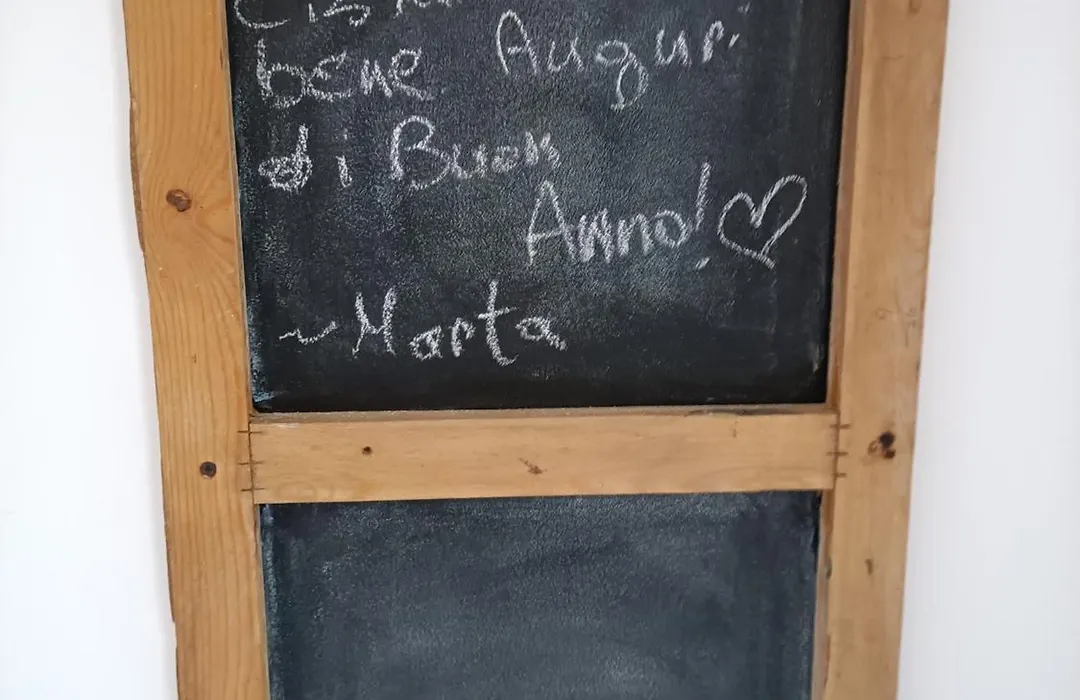 bene Auguri
di Buon
Anno!
~ Marta